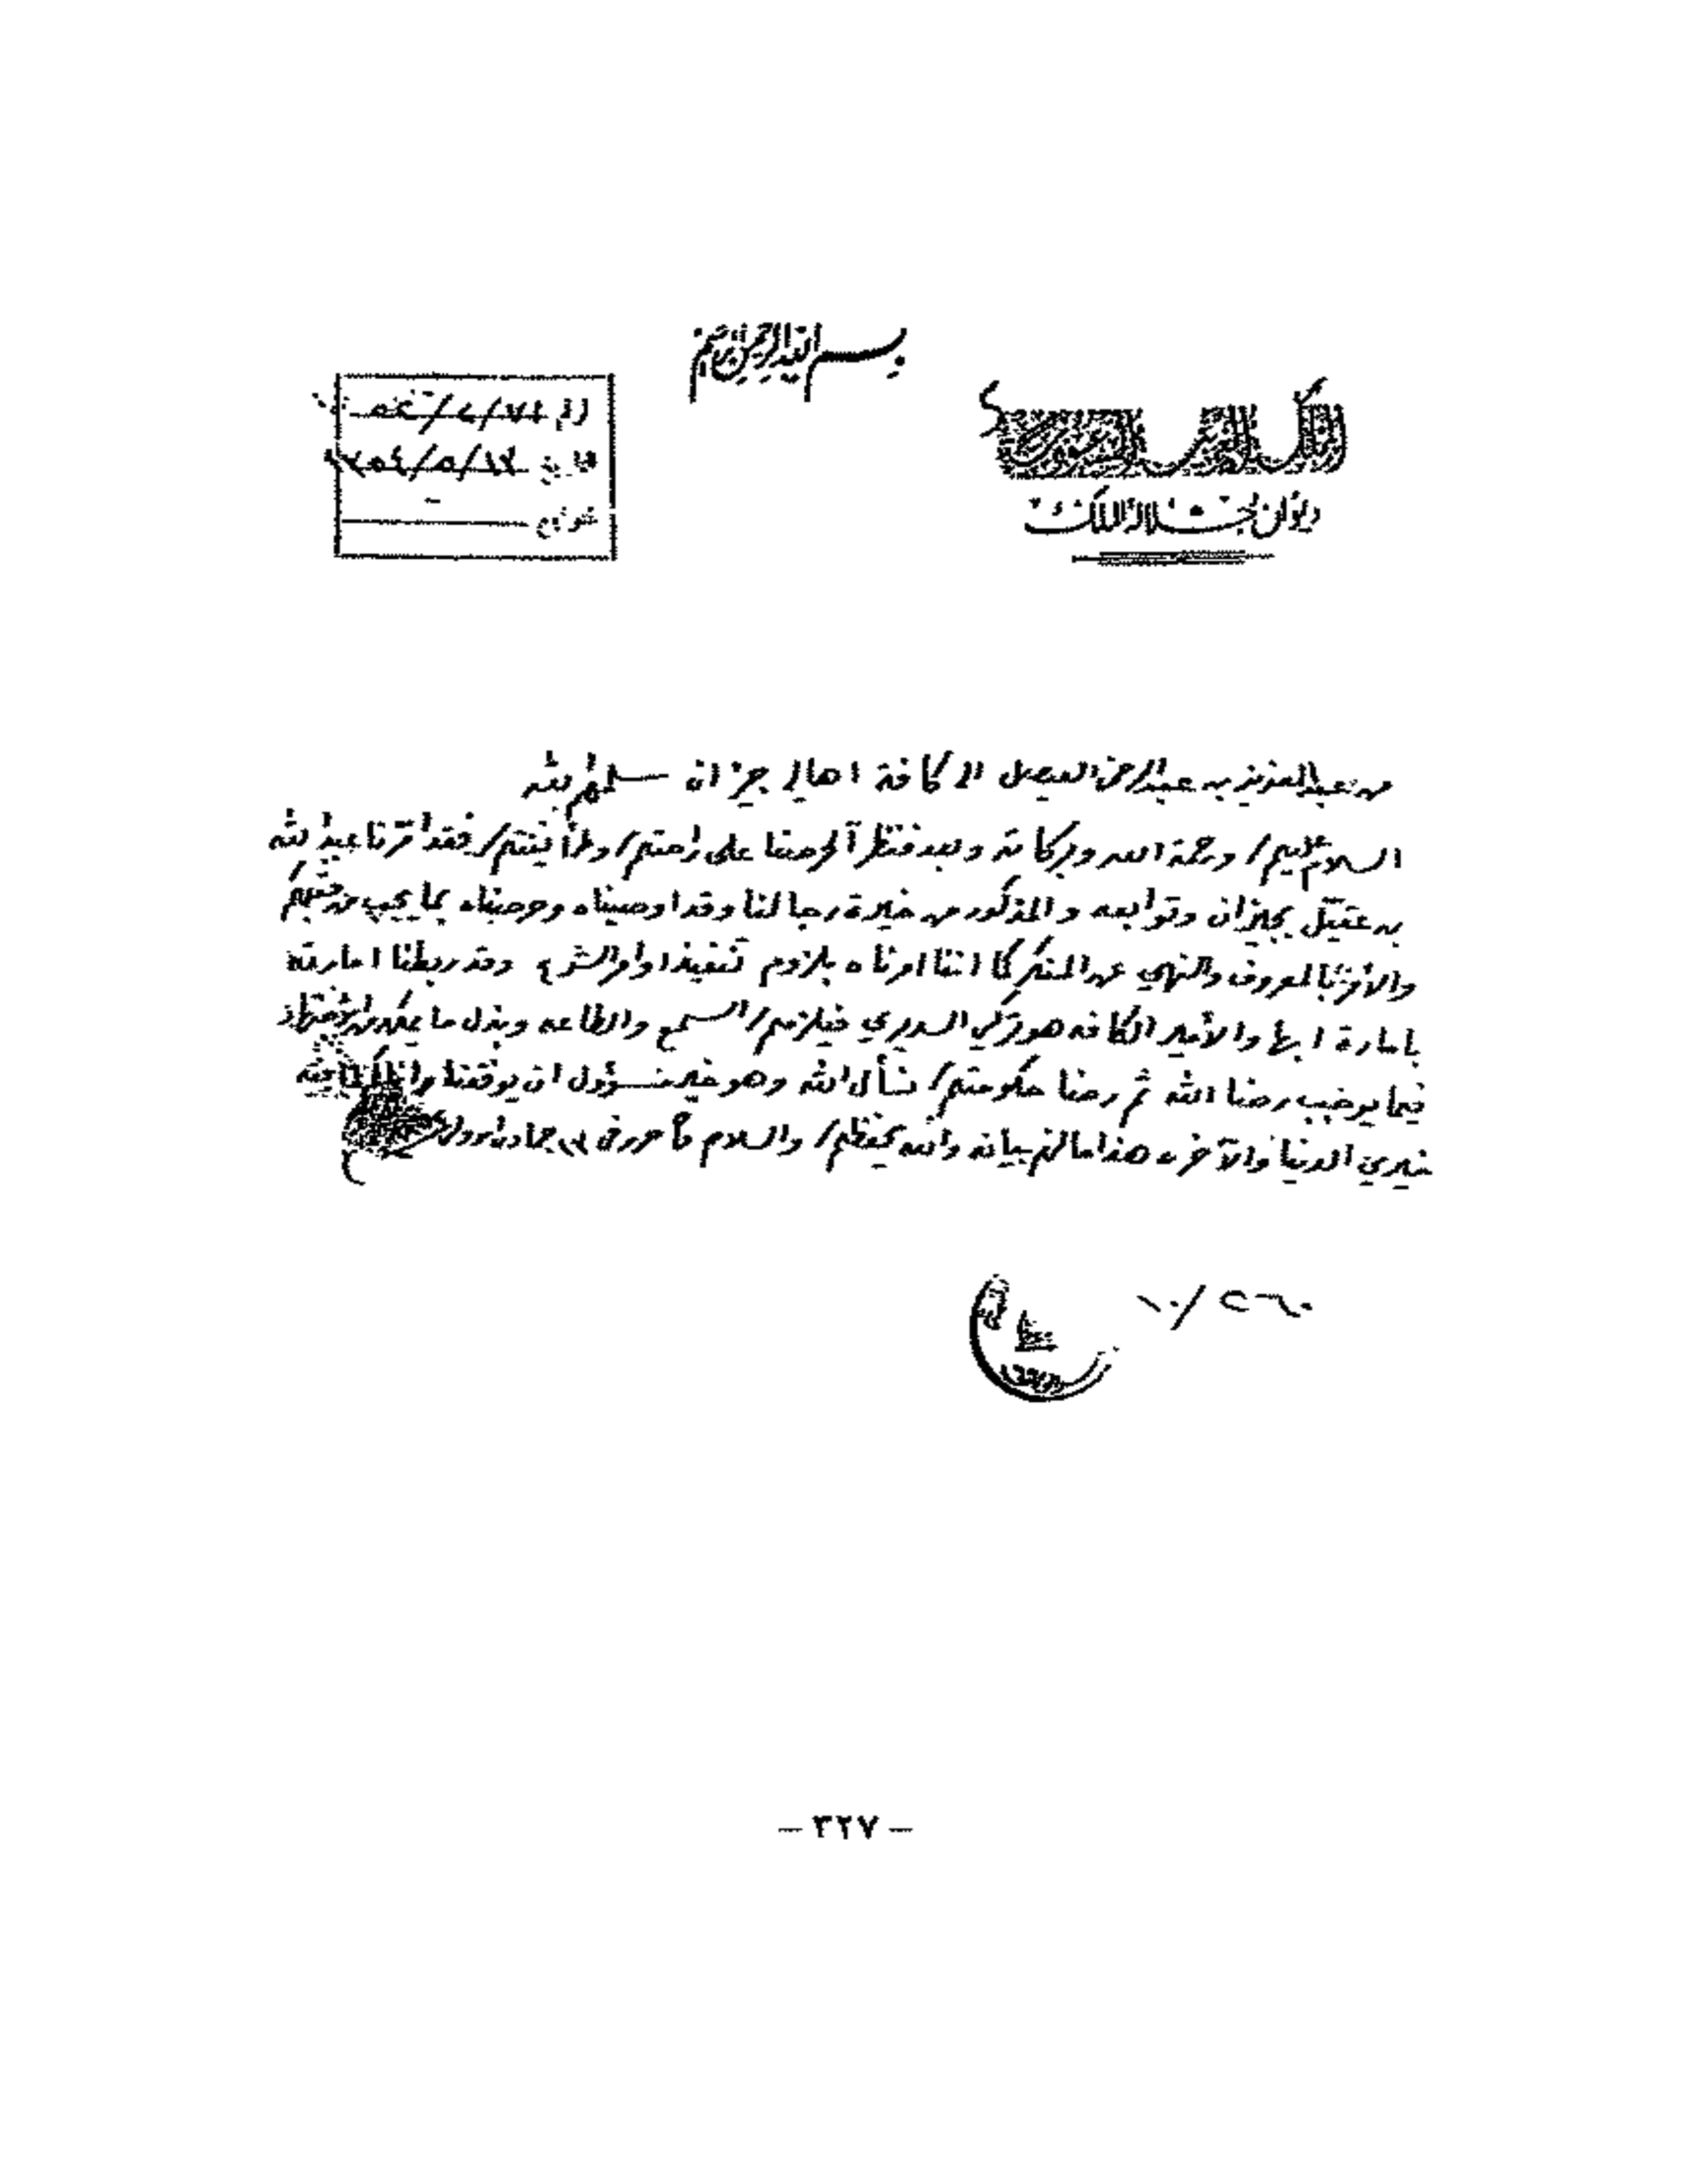 بسم الله الرحمن الرحيم
ديوان جلالة الملك
تاريخ
من عبدالعزيز بن عبدالرحمن الفيصل الى كافة اهالي جيزان سلمهم الله
السلام عليكم ورحمة الله وبركاته وبعد فنظرآ لحرصنا على راحتكم وطمأنينتكم فقد امرنا عبدالله
بن عقيل بجيزان وتوابعه والمذكور من خيرة رجالنا وقد اوصيناه وحرصناه بما يجب
والأمر بالمعروف والنهي عن المنكر كما اننا امرناه بلزوم تنفيذ اوامر الشرع وقد ربطنا امارته
بامارة ابها والأمير الكافه هو تركي السديري فيلزمكم السمع والطاعه وبذل ما يمكن من
فيما يوجب رضا الله ثم رضا حكومتكم نسأل الله وهو خير مسؤول ان يوفقنا واياكم لما فيه
خيري الدنيا والآخره هذا ما لزم بيانه والله يحفظكم والسلام حرر في جماد اول
— ٣٢٧ —